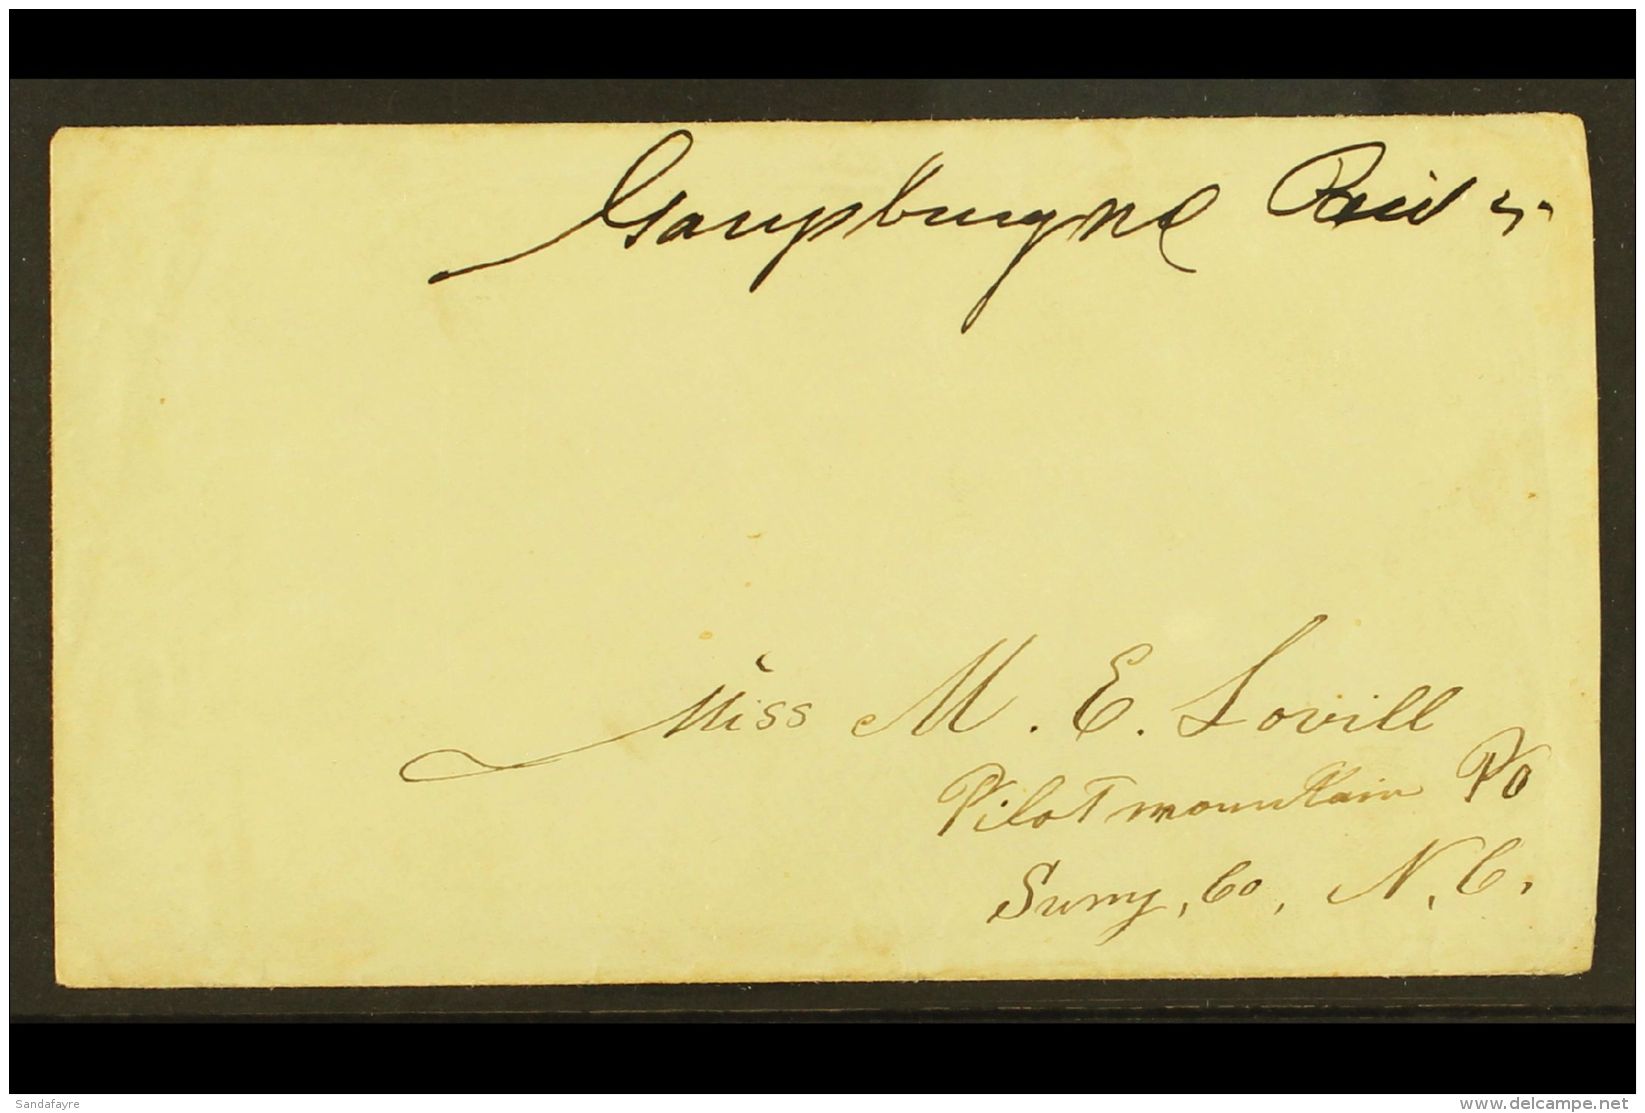 Gaupsburg N C Paid 5
Miss M. E. Lovill
Pilot mountain PO
Surry, Co, N. C.
Sandafayre
www.delcampe.net